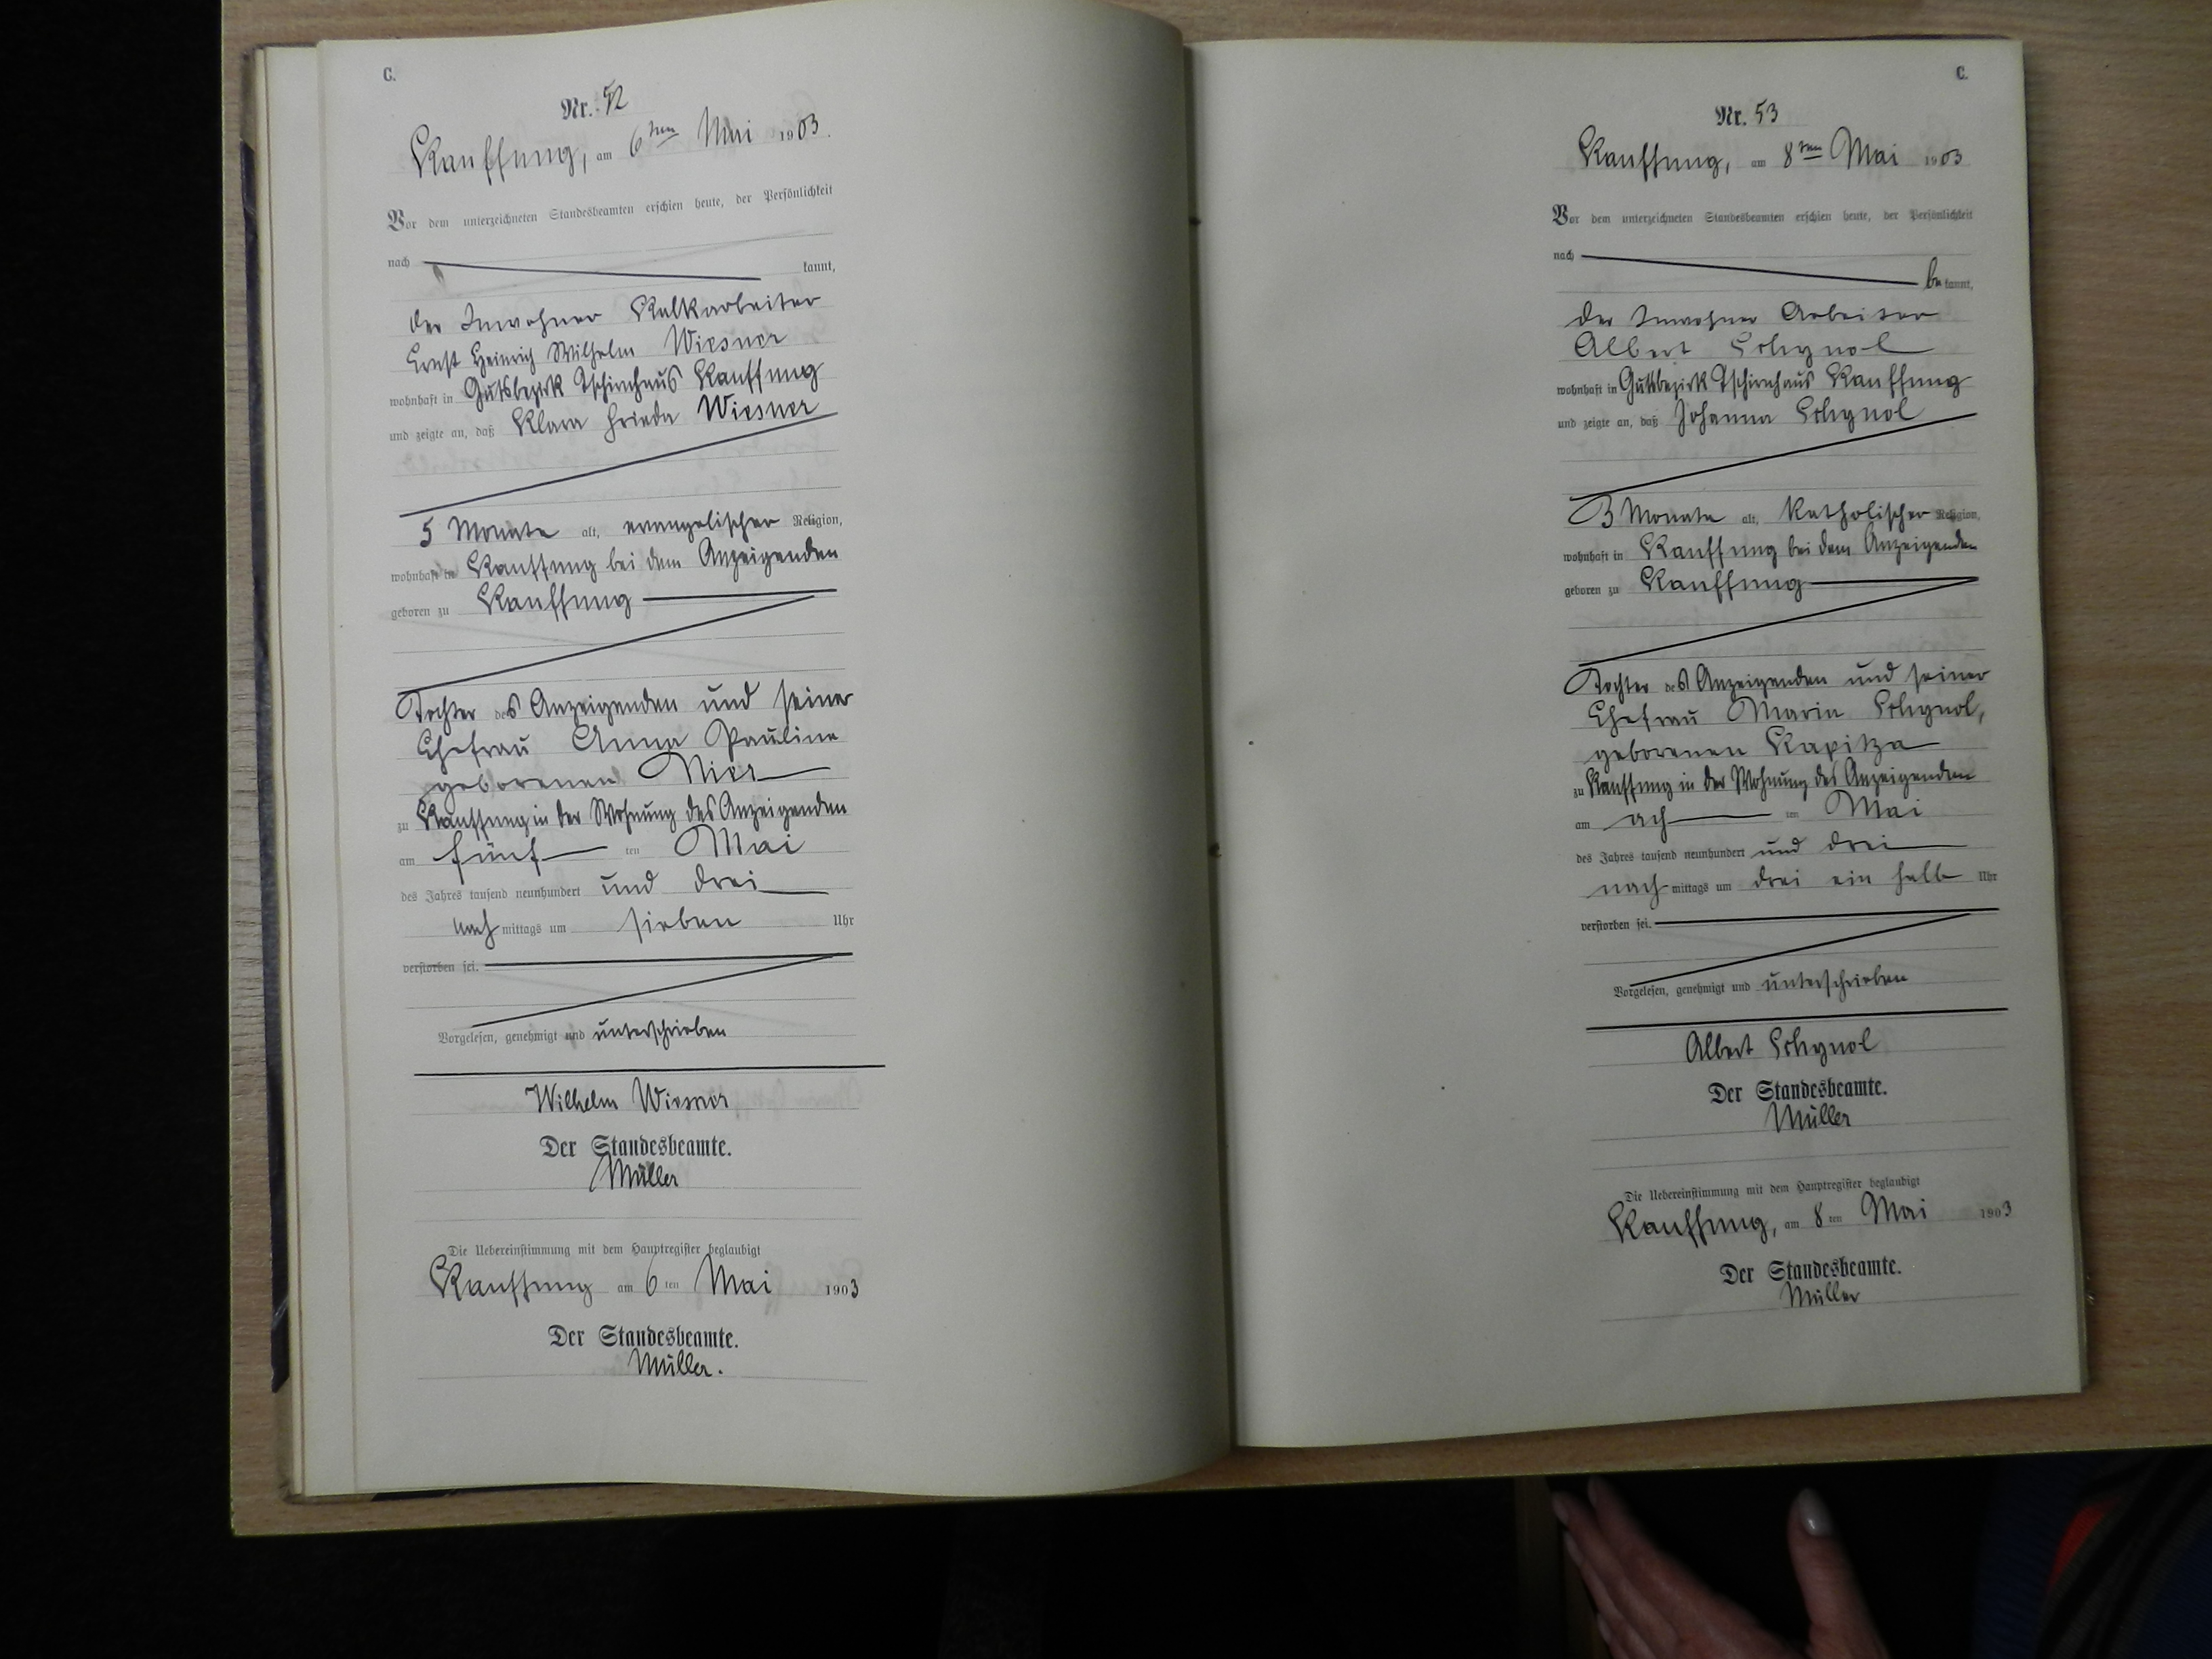 C.
Nr. 52
Kauffung, am 6ten Mai 1903.
Vor dem unterzeichneten Standesbeamten erschien heute, der Persönlichkeit
nach kannt,
der Inwohner Kalkarbeiter
Ernst Heinrich Wilhelm Wiesner
wohnhaft in Gutsbezirk Tschirnhaus Kauffung
und zeigte an, daß Klara Frieda Wiesner
5 Monate alt, evangelischer Religion,
wohnhaft in Kauffung bei dem Anzeigenden
geboren zu Kauffung
Tochter des Anzeigenden und seiner
Ehefrau Anna Pauline
geborenen Mier
zu Kauffung in der Wohnung des Anzeigenden
am fünf ten Mai
des Jahres tausend neunhundert und drei
nach mittags um sieben Uhr
verstorben sei.
Vorgelesen, genehmigt und unterschrieben
Wilhelm Wiesner
Der Standesbeamte.
Müller
Die Uebereinstimmung mit dem Hauptregister beglaubigt
Kauffung am 6 ten Mai 1903
Der Standesbeamte.
Müller.
C.
Nr. 53
Kauffung, am 8ten Mai 1903
Vor dem unterzeichneten Standesbeamten erschien heute, der Persönlichkeit
nach be kannt,
der Inwohner Arbeiter
Albert
wohnhaft in Gutsbezirk Tschirnhaus Kauffung
und zeigte an, daß Johanna
3 Monate alt, katholischer Religion,
wohnhaft in Kauffung bei dem Anzeigenden
geboren zu Kauffung
Tochter des Anzeigenden und seiner
Ehefrau Maria
geborenen Kapitza
zu Kauffung in der Wohnung des Anzeigenden
am ach ten Mai
des Jahres tausend neunhundert und drei
nach mittags um drei ein halb Uhr
verstorben sei.
Vorgelesen, genehmigt und unterschrieben
Albert
Der Standesbeamte.
Müller
Die Uebereinstimmung mit dem Hauptregister beglaubigt
Kauffung, am 8 ten Mai 1903
Der Standesbeamte.
Müller